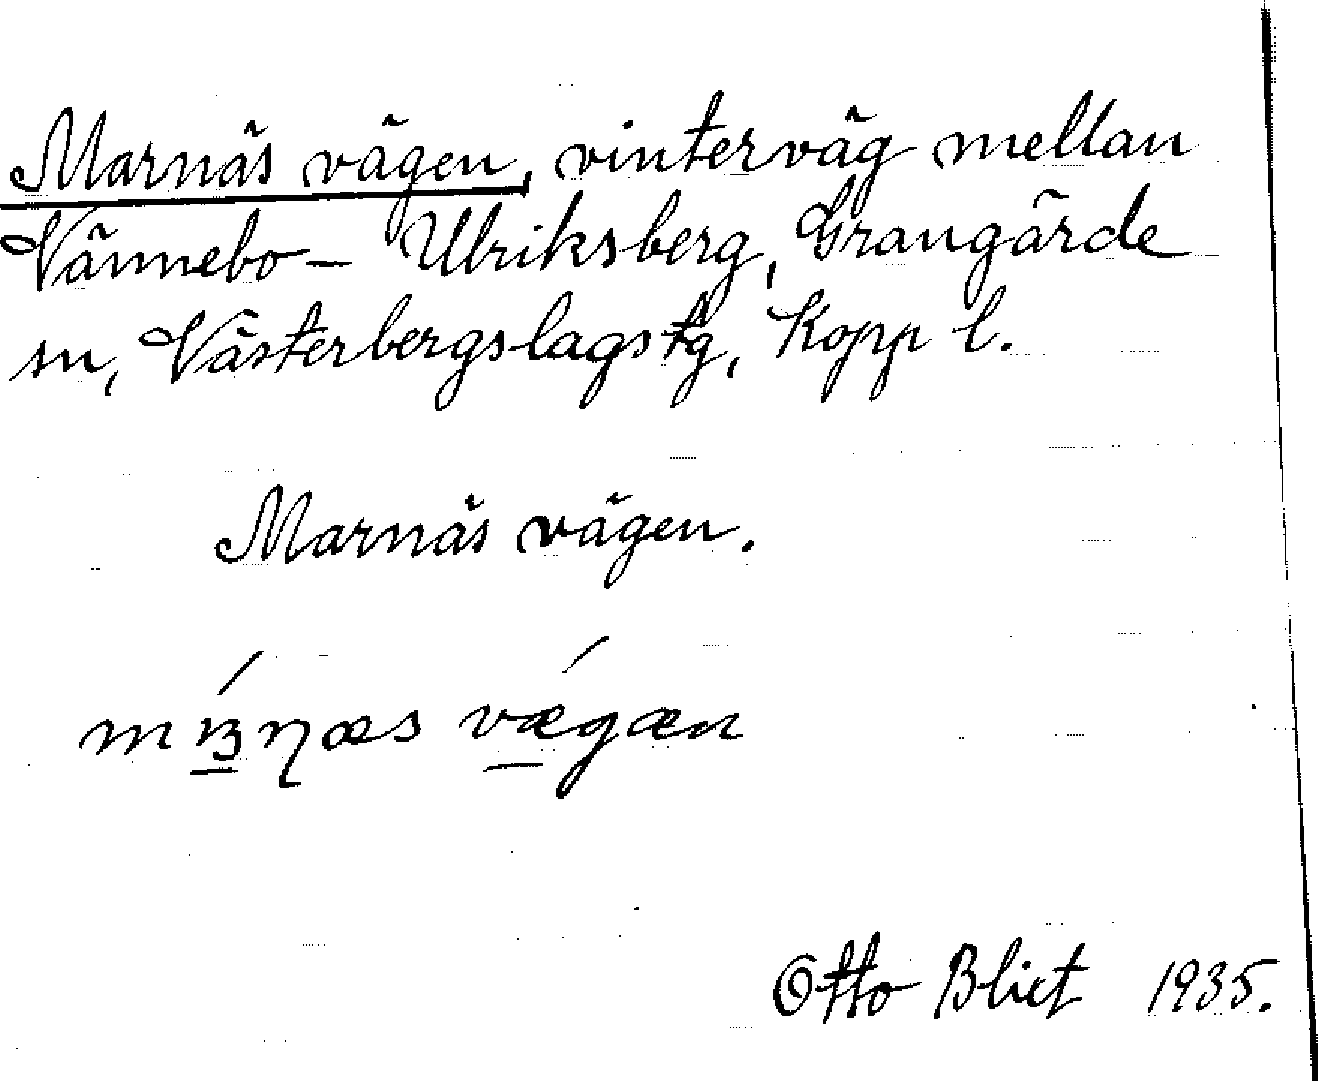 Marnäs vägen, vinterväg mellan
Vännebo – Ulriksberg, Grangärde
sn, Västerbergslags tg, Kopp l.
Marnäs vägen.
vægæn
Otto Blixt 1935.